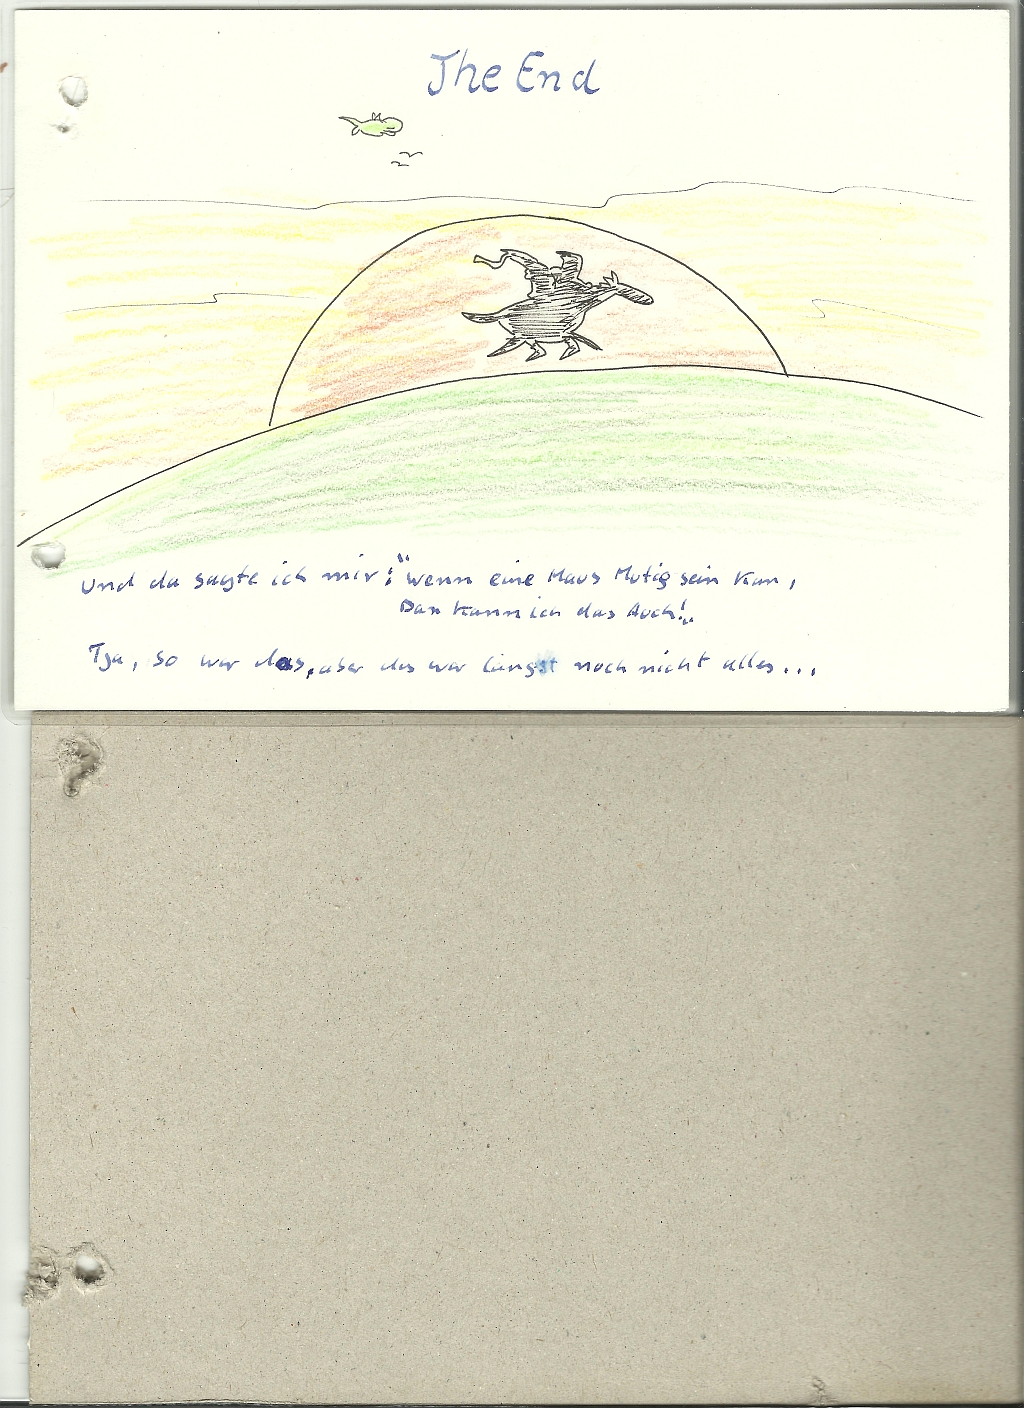 The End
Und da sagte ich mir: "wenn eine Maus Mutig sein kan,
Dan kann ich das Auch!"
Tja, so war das, aber das war längst noch nicht alles...